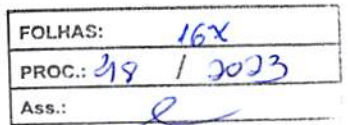 FOLHAS: 16X
PROC.: 48 / 2023
Ass.: